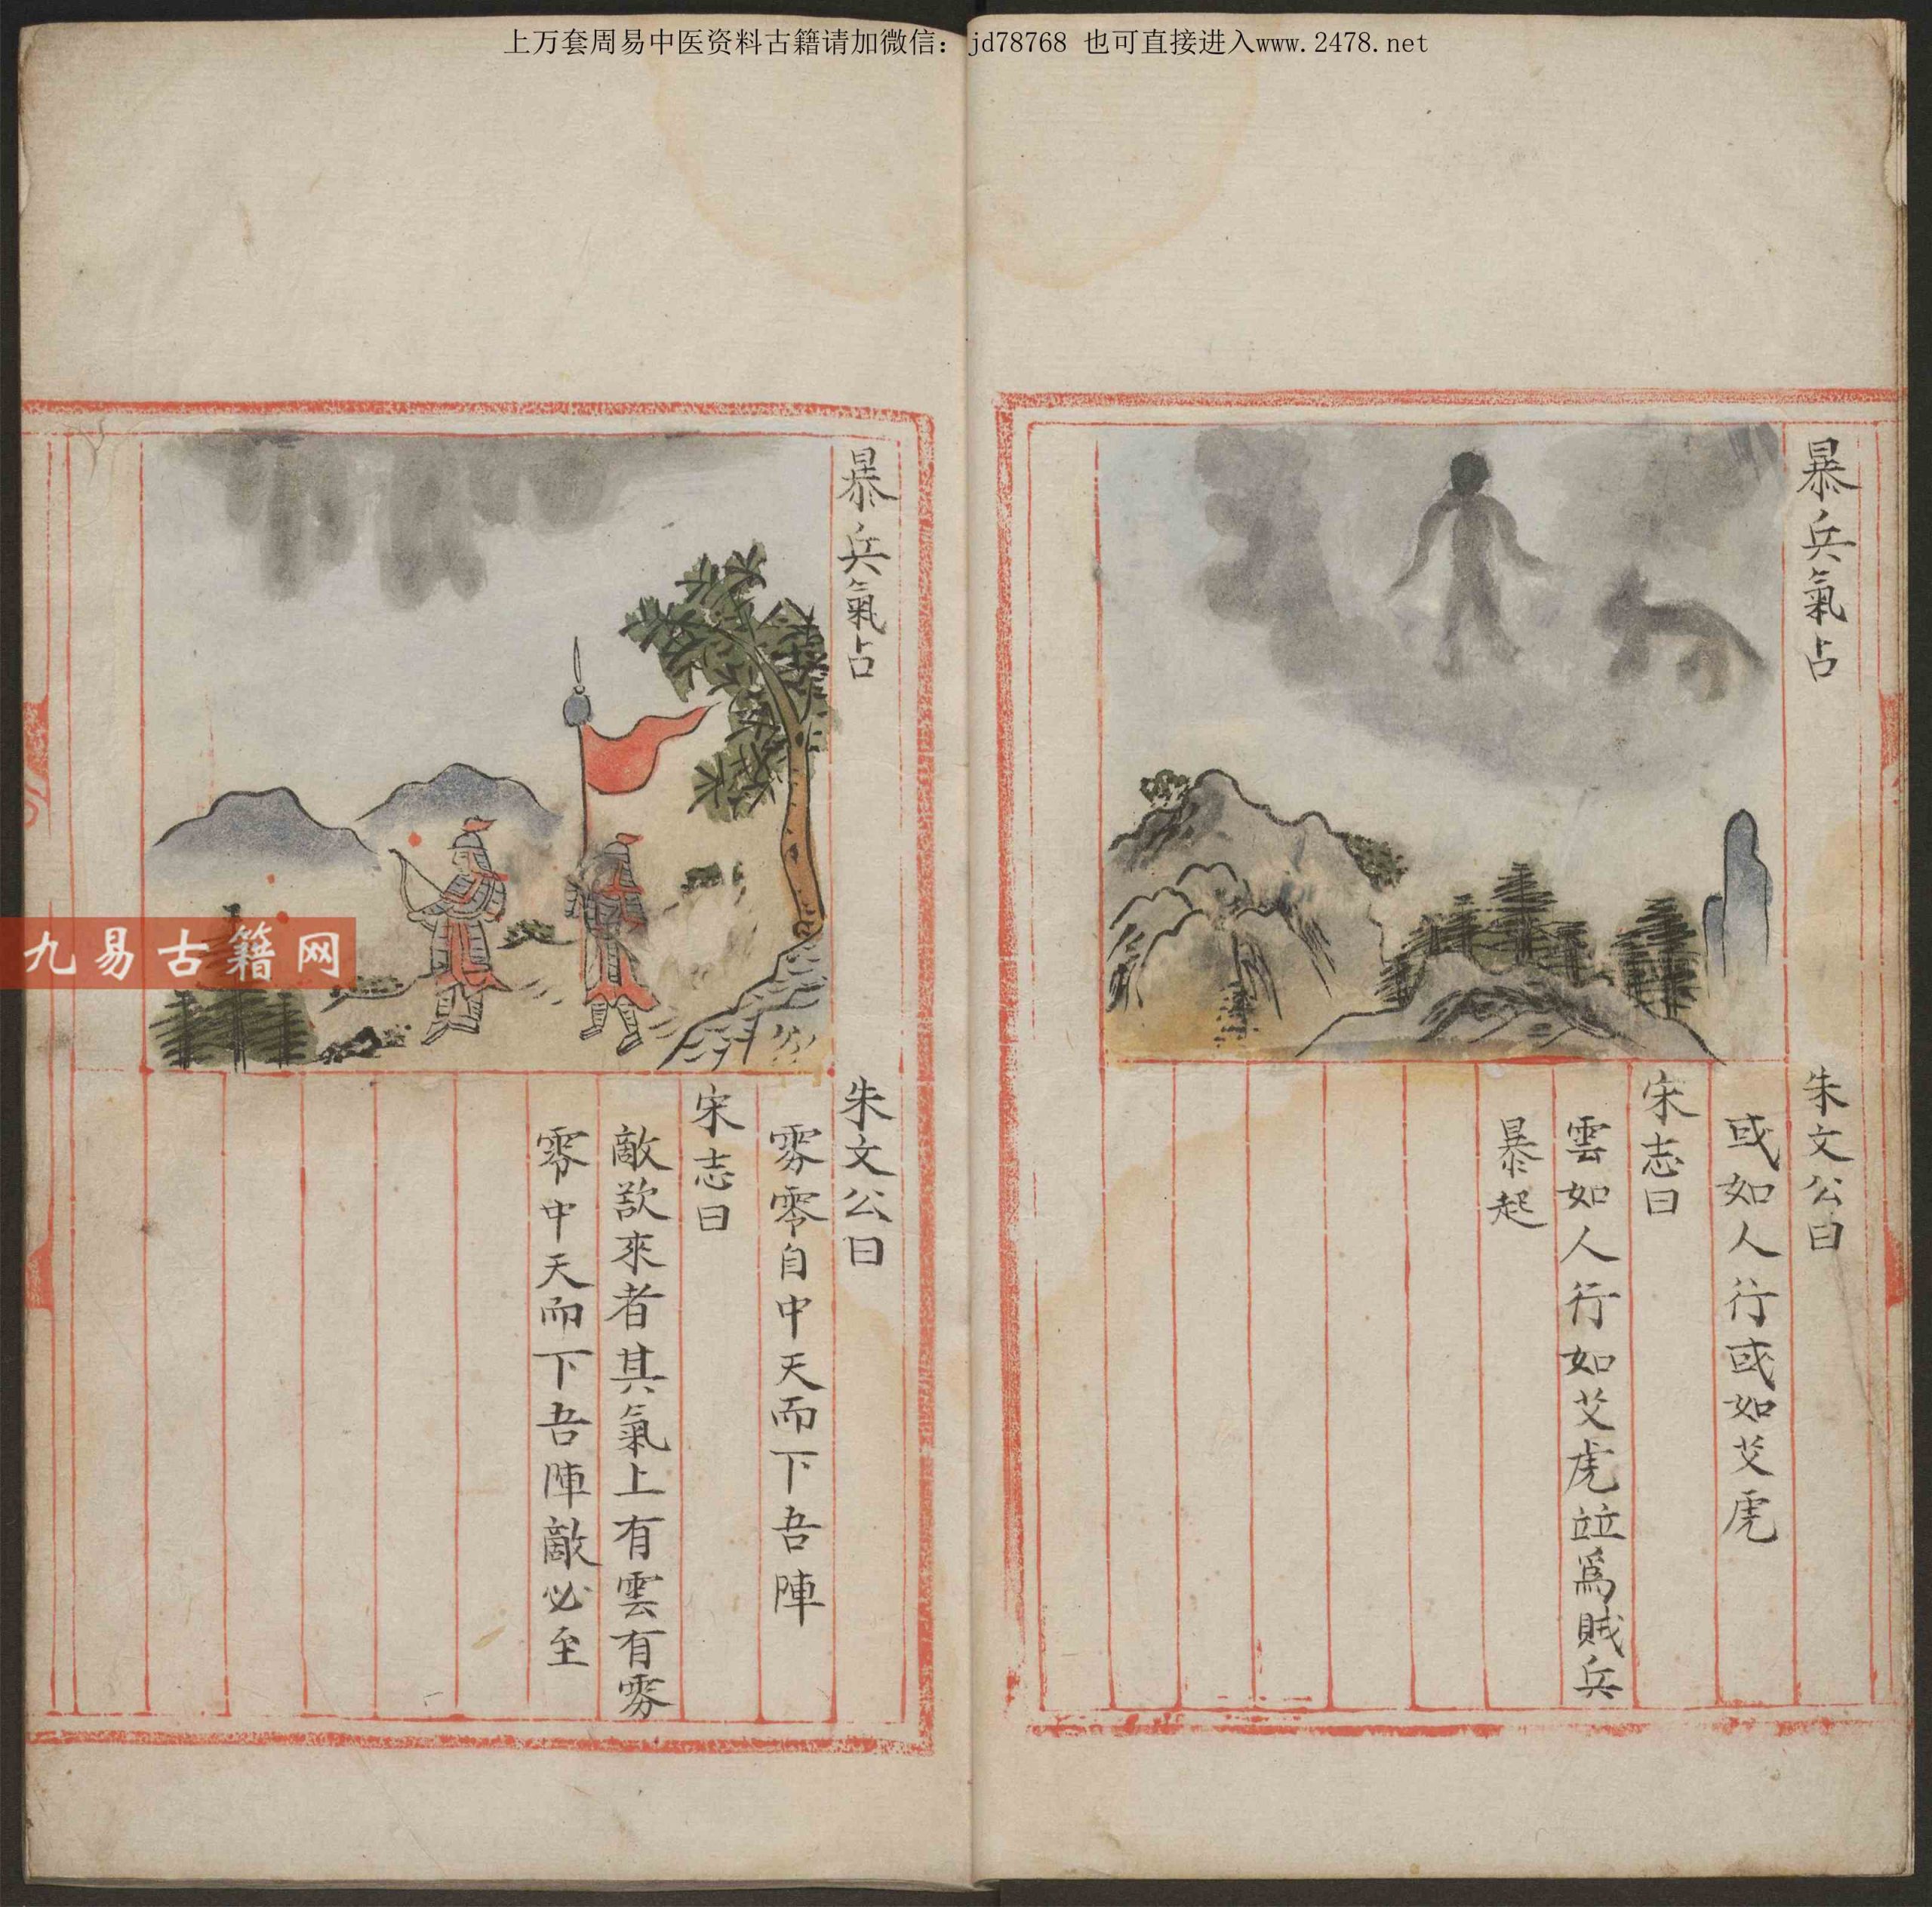 上万套周易中医资料古籍请加微信：jd78768 也可直接进入www.2478.net
暴兵氣占
朱文公曰
或如人行或如艾虎
宋志曰
雲如人行如艾虎竝爲賊兵
暴起
暴兵氣占
朱文公曰
雰零自中天而下吾陣
宋志曰
敵欲來者其氣上有雲有雰
零中天而下吾陣敵必至
九易古籍网